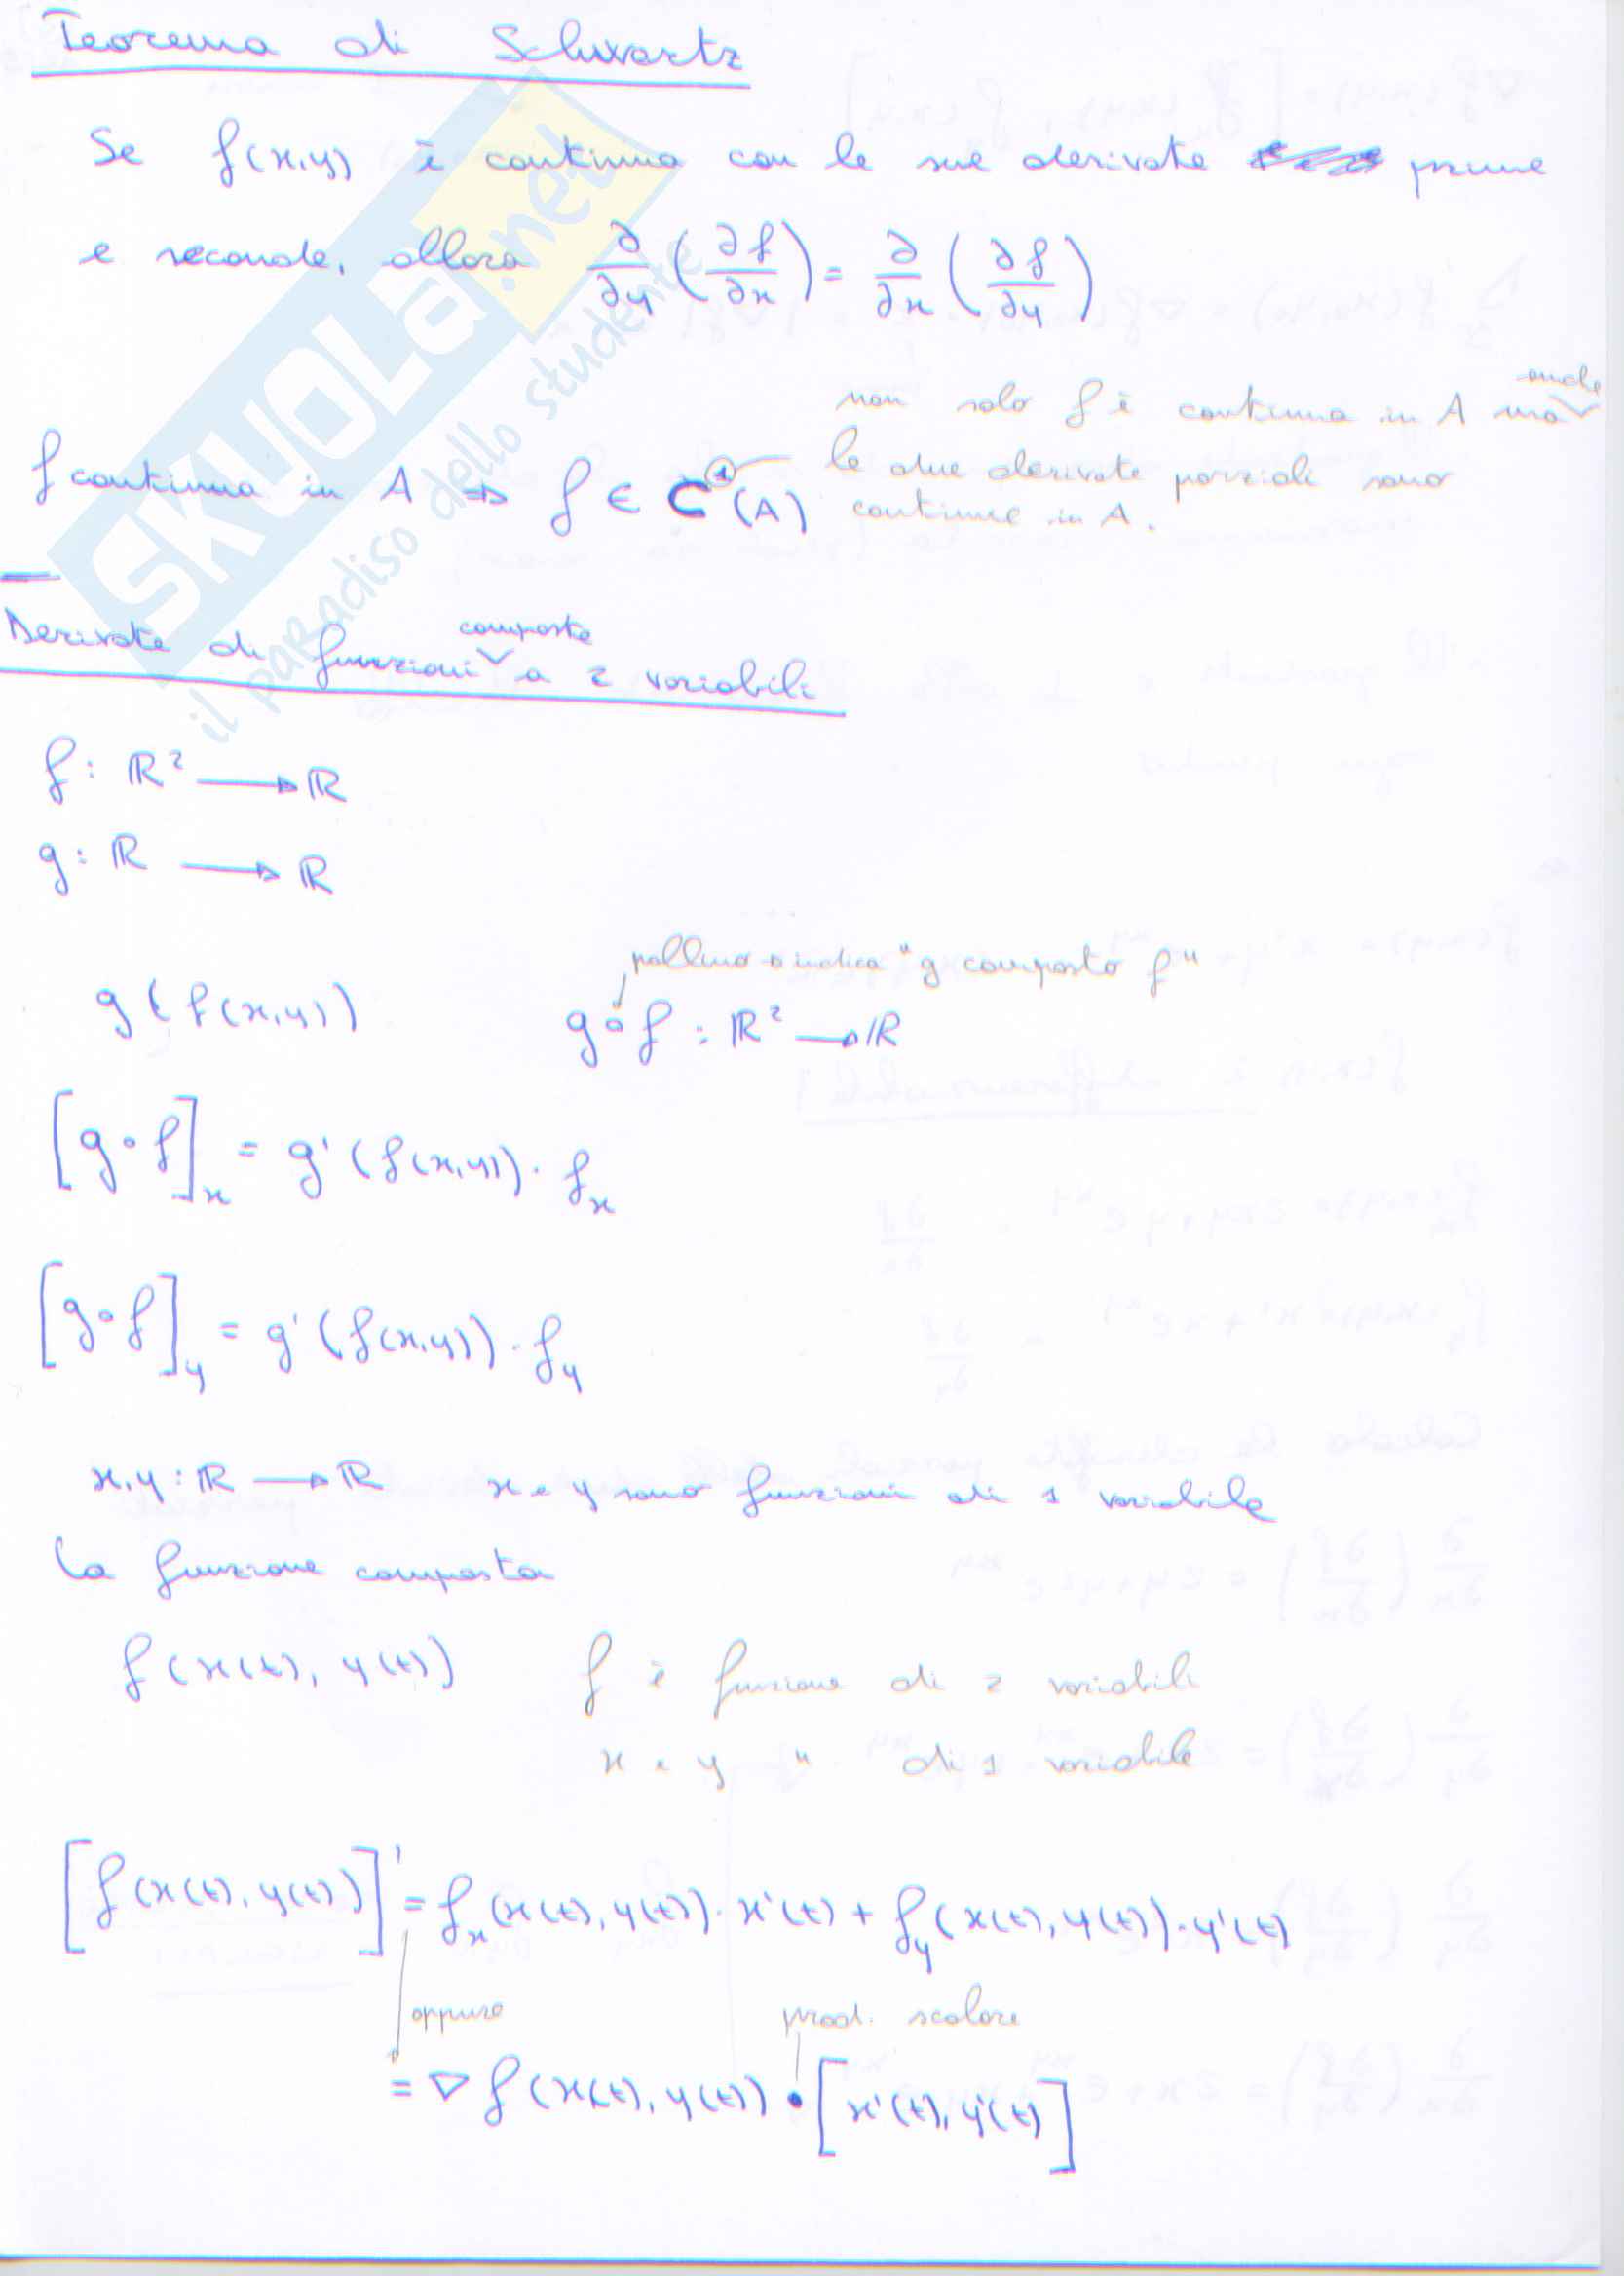 Teorema di Schwartz
Se f(x,y) è continua con le sue derivate prime
e seconde, allora ∂/∂y (∂f/∂x) = ∂/∂x (∂f/∂y)
non solo f è continua in A ma anche
le due derivate parziali sono
continue in A.
f continua in A ⇒ f ∈ C¹(A)
Derivate di funzioni composte a 2 variabili
f : ℝ² → ℝ
g : ℝ → ℝ
pallino → indica "g composto f"
g(f(x,y)) g∘f : ℝ² → ℝ
[g∘f]ₓ = g'(f(x,y)) · fₓ
[g∘f]_y = g'(f(x,y)) · f_y
x,y : ℝ → ℝ x e y sono funzioni di 1 variabile
la funzione composta
f(x(t), y(t)) f è funzione di 2 variabili
x e y " di 1 variabile
[f(x(t), y(t))]' = fₓ(x(t), y(t)) · x'(t) + f_y(x(t), y(t)) · y'(t)
oppure prod. scalare
= ∇f(x(t), y(t)) • [x'(t), y'(t)]
SKUOLA.net
il paradiso dello studente